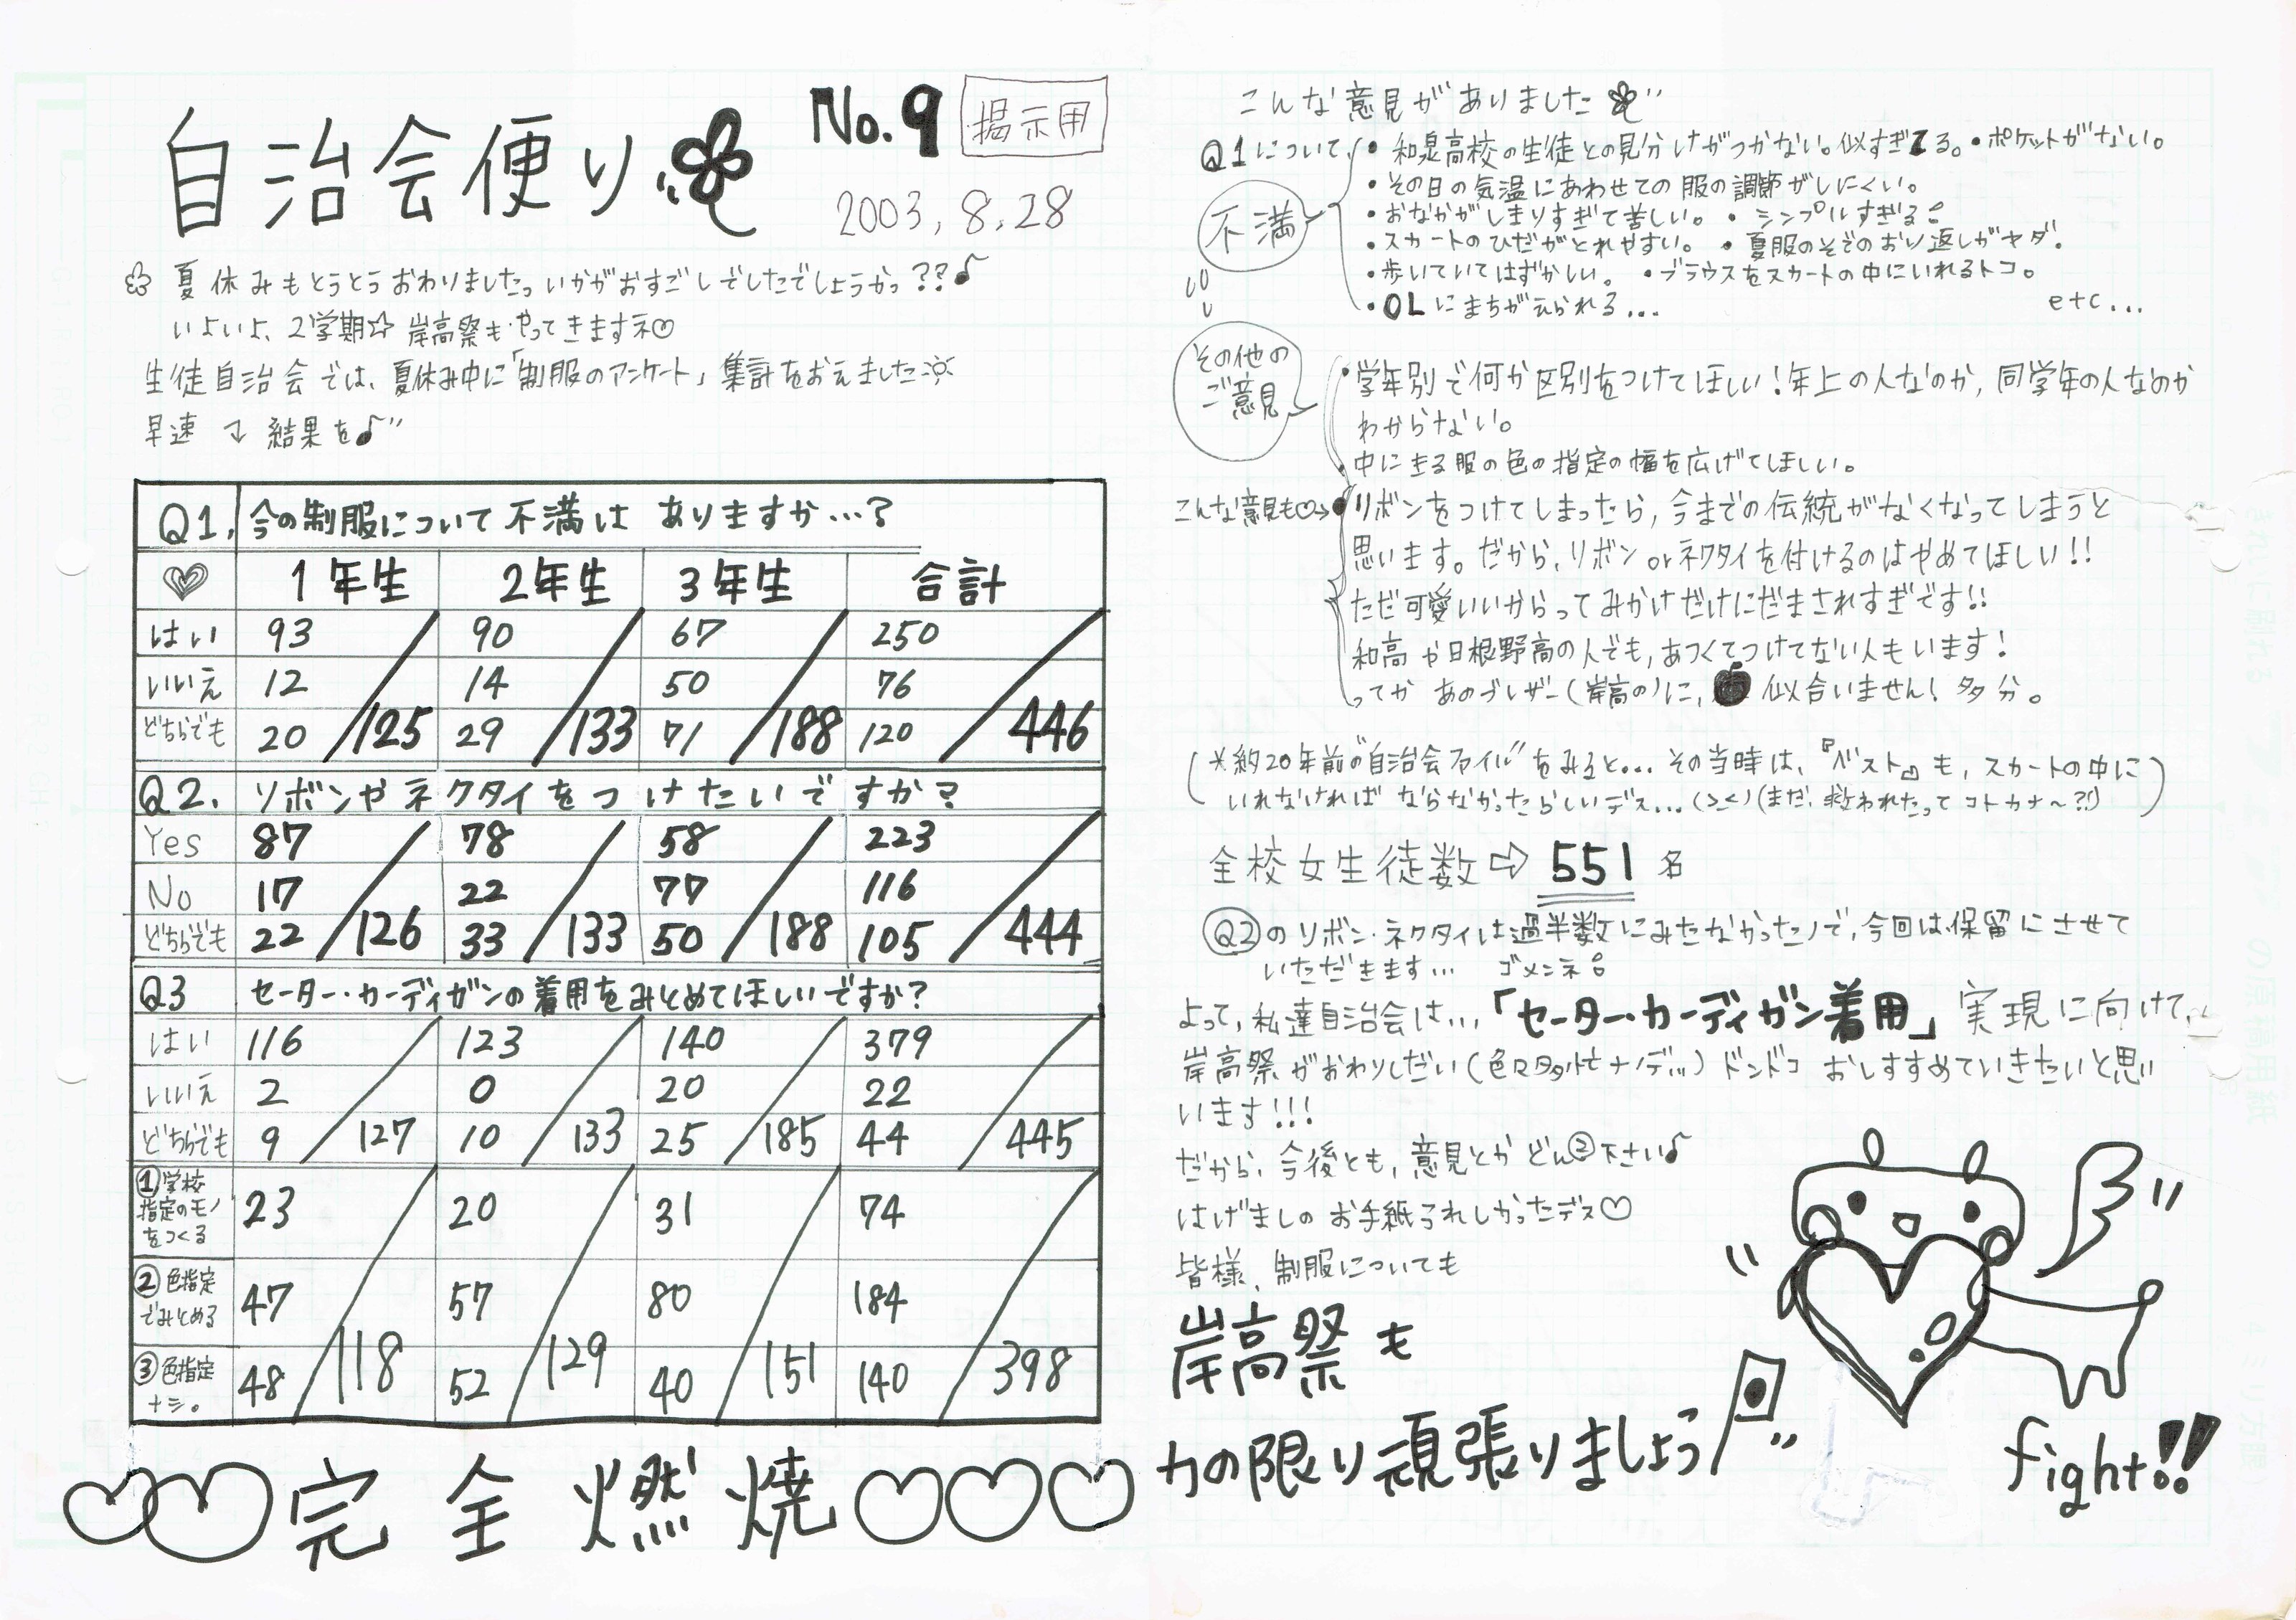 自治会便り
No.9 掲示用
2003, 8, 28
夏休みもとうとうおわりました。いかがおすごしでしたでしょうかっ??♪
いよいよ、2学期☆ 岸高祭もやってきますネ♡
生徒自治会では、夏休み中に「制服のアンケート」集計をおえました
早速 ↴ 結果を♪"
Q1. 今の制服について不満は ありますか…?
1年生 2年生 3年生 合計
はい 93 90 67 250
いいえ 12 14 50 76
どちらでも 20 /125 29 /133 71 /188 120 /446
Q2. リボンやネクタイをつけたいですか?
Yes 87 78 58 223
No 17 22 77 116
どちらでも 22 /126 33 /133 50 /188 105 /444
Q3 セーター・カーディガンの着用をみとめてほしいですか?
はい 116 123 140 379
いいえ 2 0 20 22
どちらでも 9 /127 10 /133 25 /185 44 /445
①学校
指定のモノ
をつくる
23 20 31 74
②色指定
でみとめる
47 57 80 184
③色指定
ナシ。
48 /118 52 /129 40 /151 140 /398
♡♡完全燃焼♡♡♡
こんな意見がありました
Q1について、
不満
・和泉高校の生徒との見分けがつかない。似すぎてる。・ポケットがない。
・その日の気温にあわせての服の調節がしにくい。
・おなかがしまりすぎて苦しい。・シンプルすぎる!
・スカートのひだがとれやすい。・夏服のそでのおり返しがヤダ。
・歩いていてはずかしい。・ブラウスをスカートの中にいれるトコ。
・OLにまちがえられる… etc...
その他の
ご意見
・学年別で何か区別をつけてほしい!年上の人なのか,同学年の人なのか
わからない。
・中にきる服の色の指定の幅を広げてほしい。
こんな意見も♡→・リボンをつけてしまったら,今までの伝統がなくなってしまうと
思います。だから,リボンorネクタイを付けるのはやめてほしい!!
ただ可愛いいからってみかけだけにだまされすぎです!!
和高や日根野高の人でも,あつくてつけてない人もいます!
ってか あのブレザー(岸高の)に, 似合いません! 多分。
(*約20年前の"自治会ファイル"をみると… その当時は、『ベスト』も,スカートの中に
いれなければ ならなかったらしいデス…(>_<)(まだ、救われたって コトカナ〜?!))
全校女生徒数⇨ 551 名
Q2のリボン・ネクタイは過半数にみたなかったので,今回は保留にさせて
いただきます… ゴメンネ!
よって,私達自治会は…,「セーター・カーディガン着用」実現に向けて,
岸高祭がおわりしだい ドンドコ おしすすめていきたいと思い
います!!!
だから、今後とも,意見とか どん②下さい♪
はげましの お手紙うれしかったデス♡
皆様、制服についても
岸高祭も
力の限り頑張りましょう
fight!!